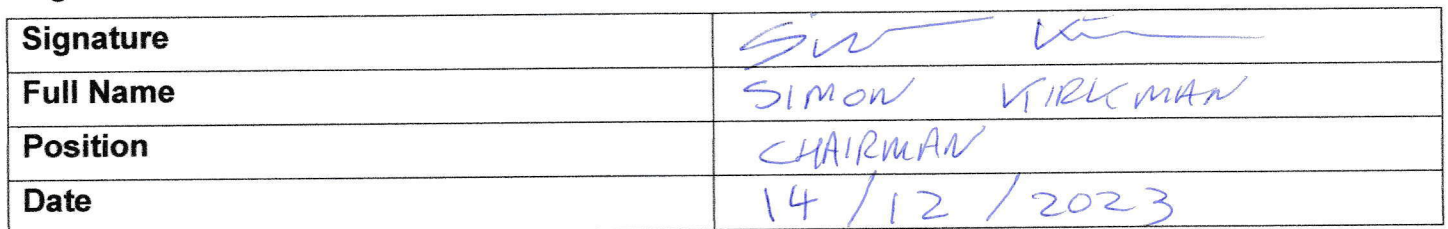 Signature
Full Name SIMON KIRKMAN
Position CHAIRMAN
Date 14/12/2023